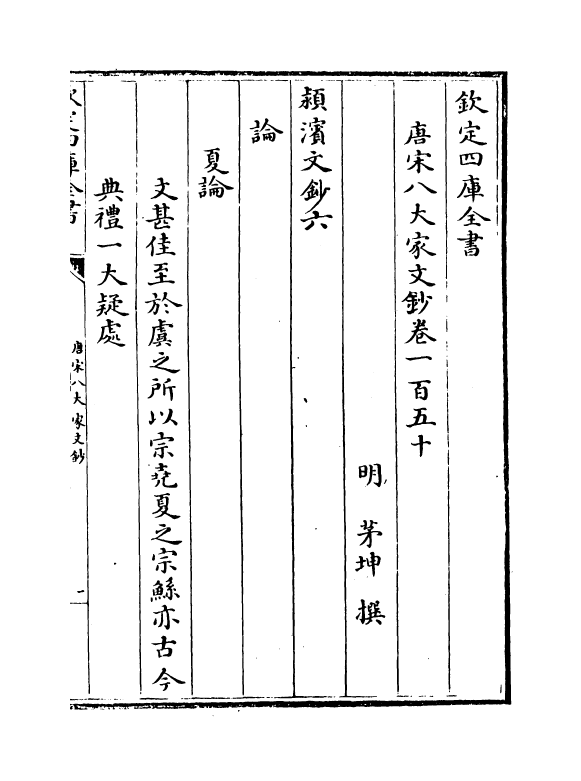 欽定四庫全書
唐宋八大家文鈔卷一百五十
明 茅坤 撰
潁濱文鈔六
論
夏論
文甚佳至於虞之所以宗堯夏之宗鯀亦古今
典禮一大疑處
欽定四庫全書
唐宋八大家文鈔
一